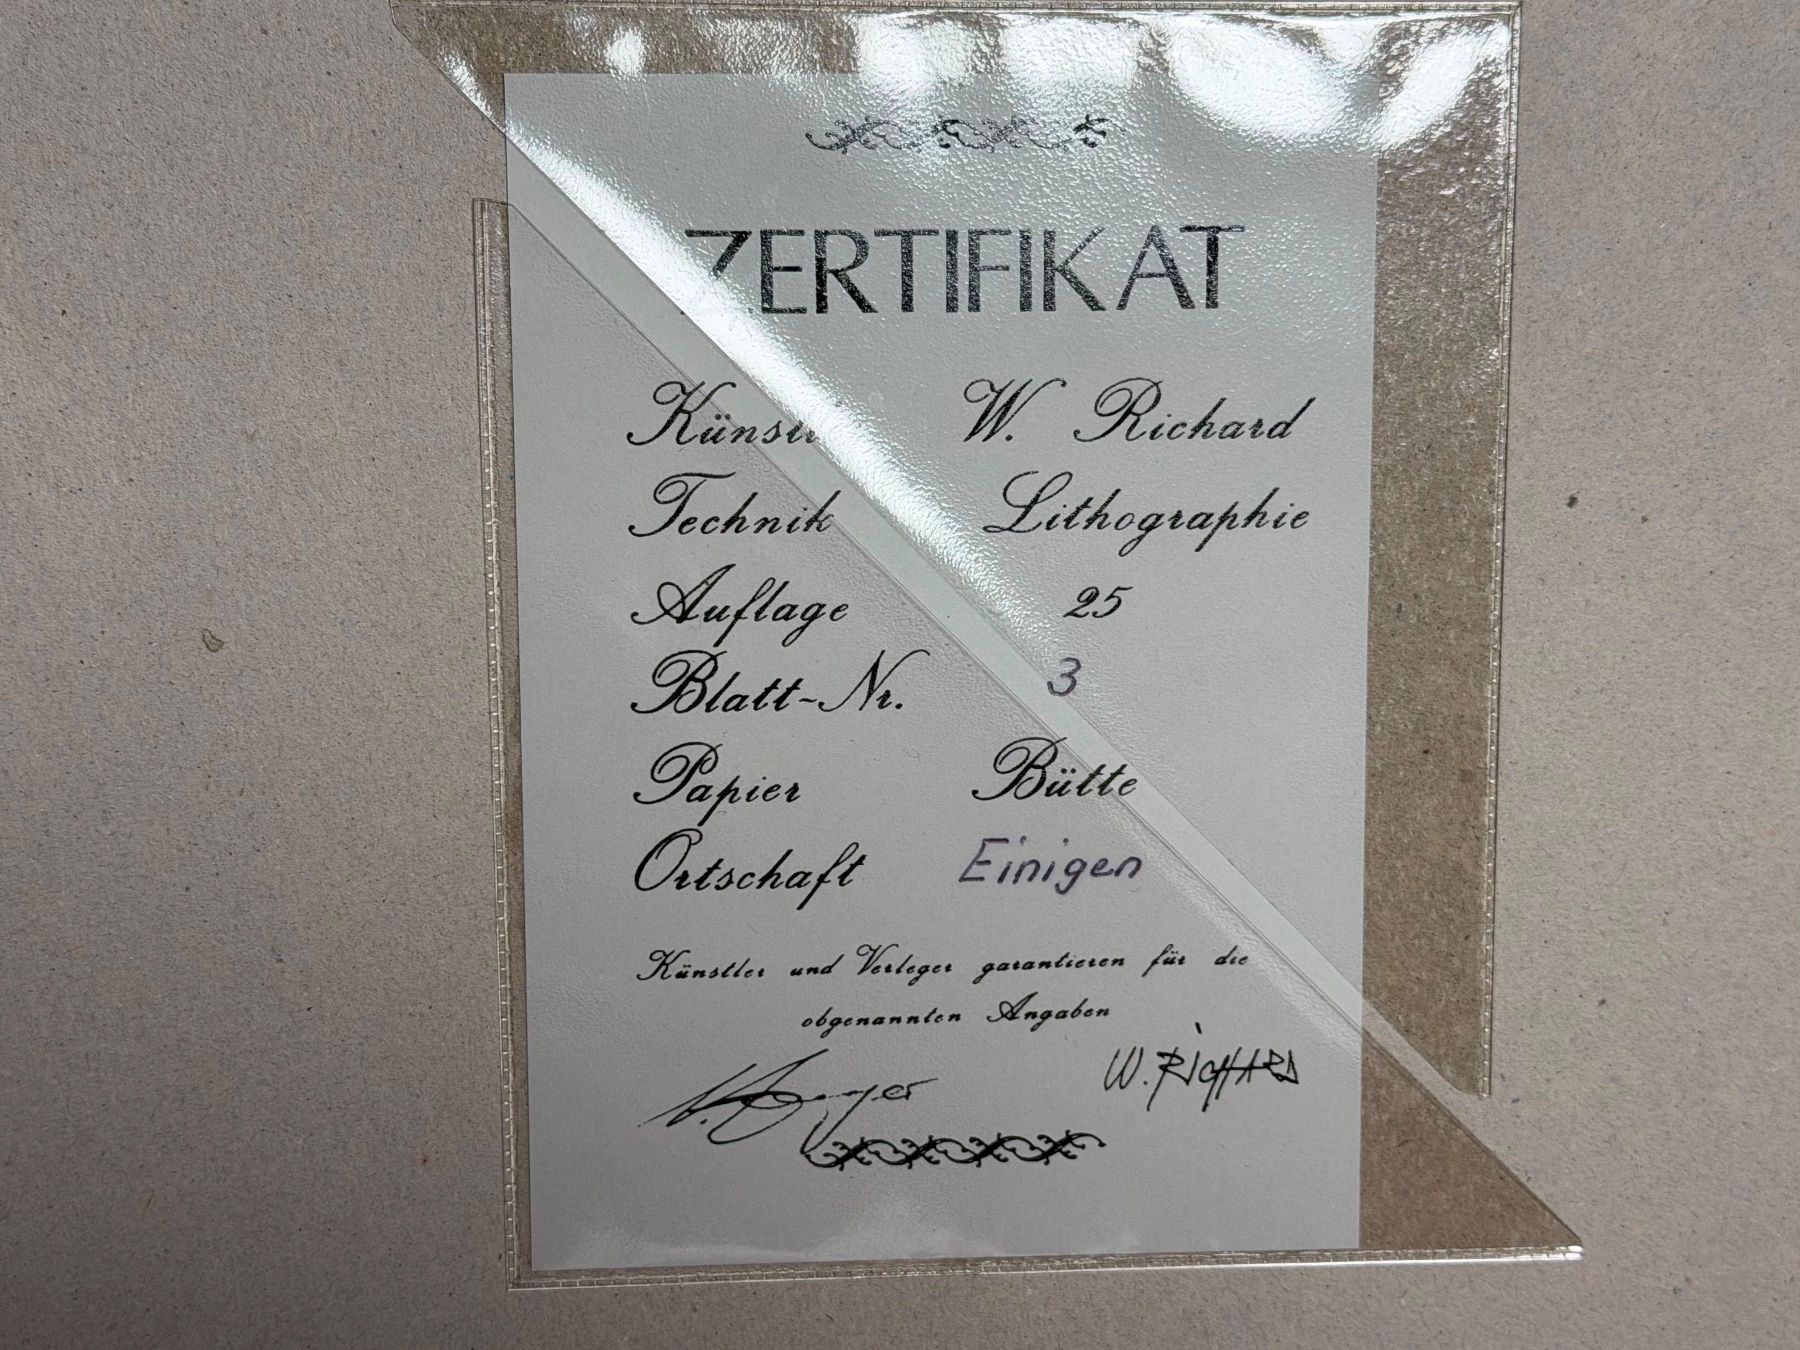 ZERTIFIKAT
W. Richard
Technik Lithographie
Auflage 25
Blatt-Nr. 3
Papier Bütte
Ortschaft Einigen
Künstler und Verleger garantieren für die
obgenannten Angaben
W. RICHARD